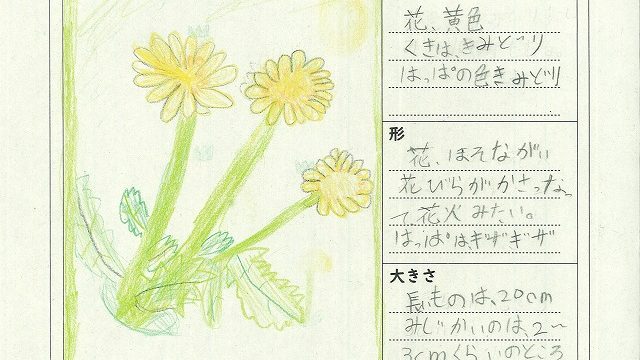 花、黄色
くきは、きみどり
はっぱの色きみどり
形
花、ほそながい
花びらがかさなっ
て花火みたい。
はっぱはギザギザ
大きさ
長ものは、20cm
みじかいのは、2〜
3cmくらいのところ